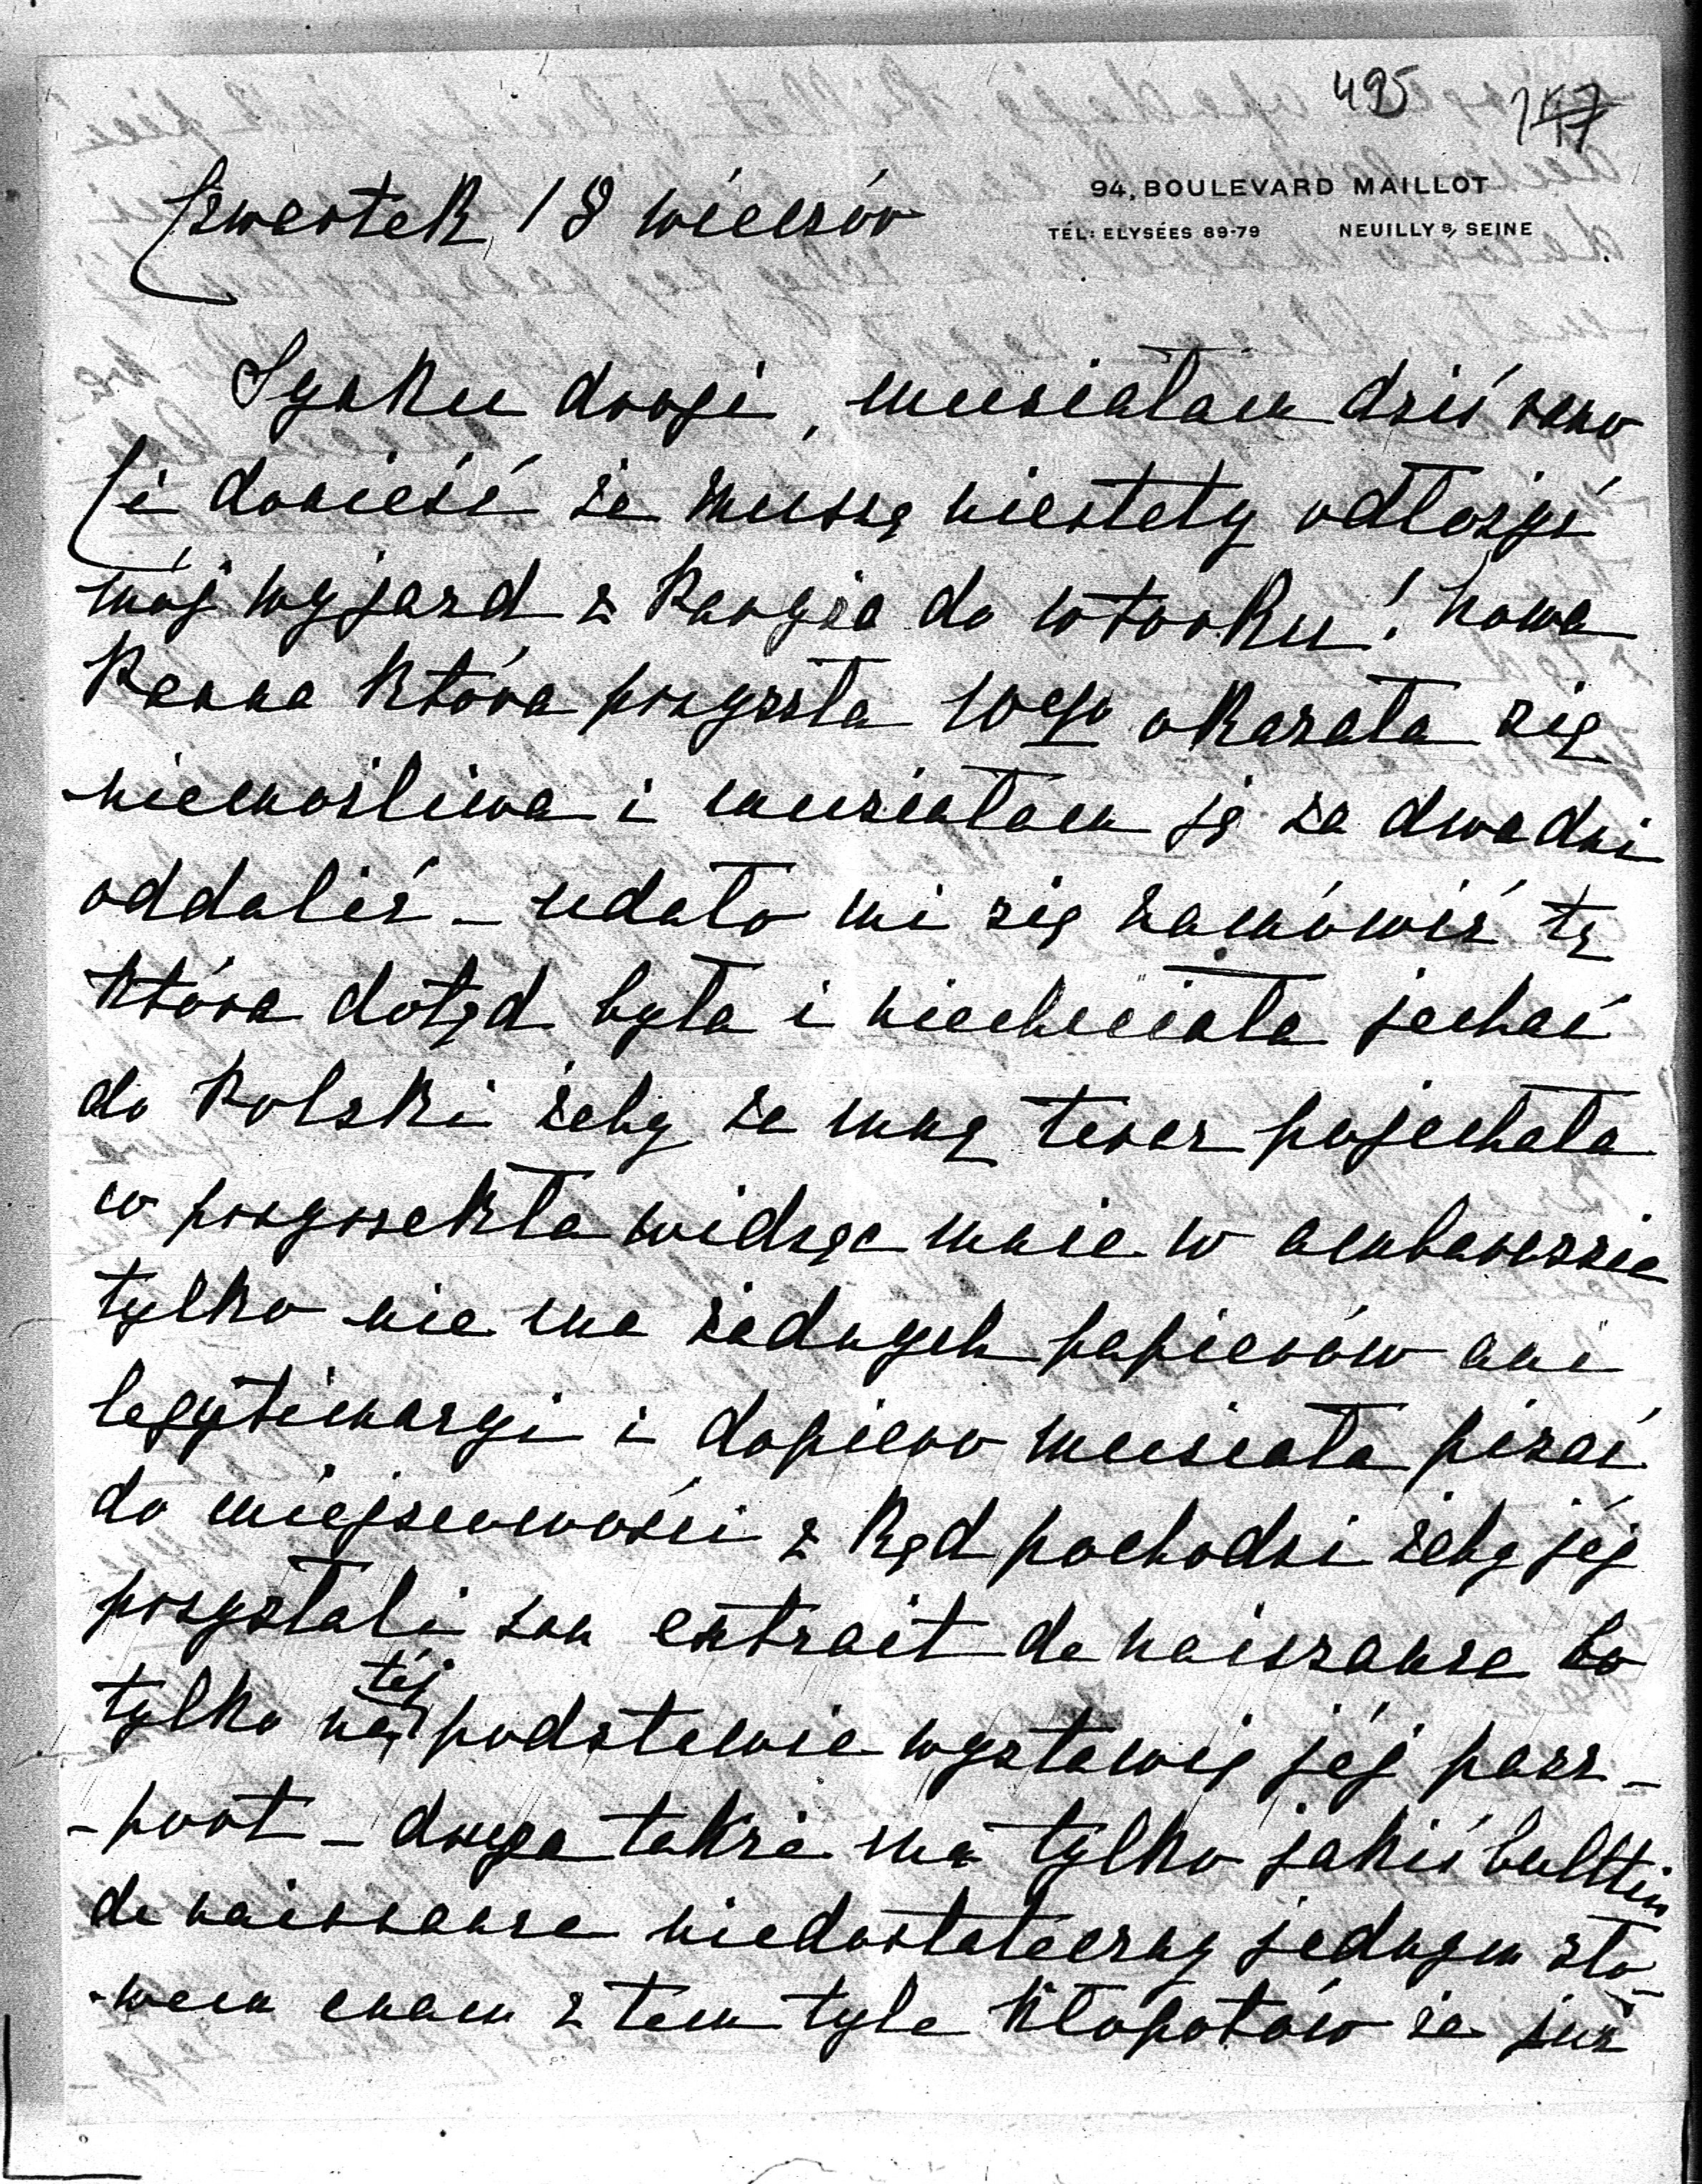 495 147
94, BOULEVARD MAILLOT
TÉL: ELYSÉES 89-79 NEUILLY S/ SEINE
Czwartek 18 wieczór
Synku drogi, musiałam dziś rano
Ci donieść że muszę niestety odłożyć
mój wyjazd z Paryża do wtorku! Nowa
Panna która przyszła 10ego okazała się
niemożliwa i musiałam ją za dwa dni
oddalić – udało mi się namówić tę
która dotąd była i niechciała jechać
do Polski żeby ze mną teraz pojechała
w przyszekła widząc mnie w ambarassie
tylko nie ma żadnych papierów ani
legytimacyi i dopiero musiała pisać
do miejscowości z kąd pochodzi żeby jéj
przysłali son extrait de naissance bo
tylko na téj podstawie wystawią jéj pasz-
-port – druga także ma tylko jakiś bulltin
de naissance niedostateczny jednym sło-
-wem mam z tem tyle kłopotów że już